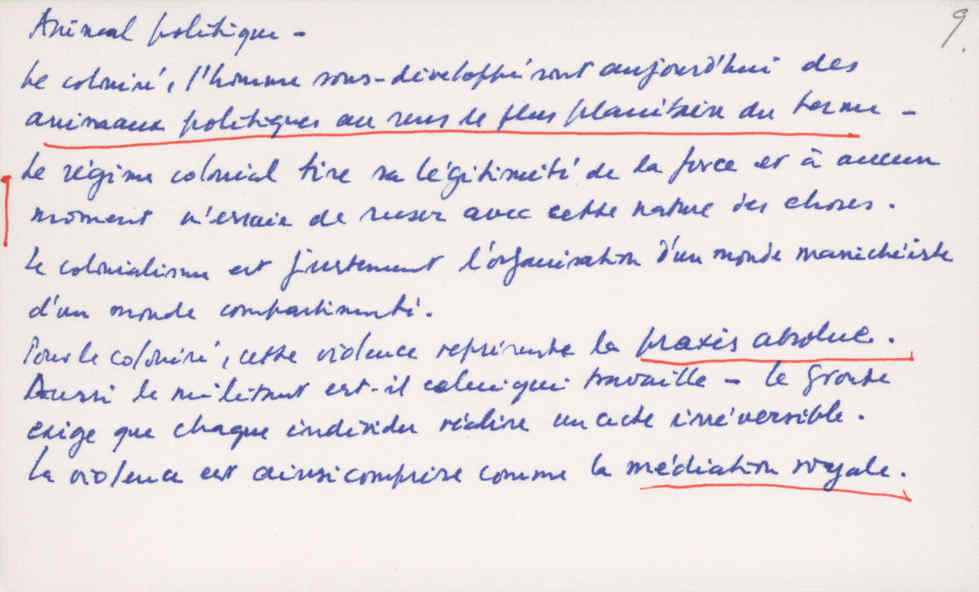 9.
Animal politique -
Le colonisé, l'homme sous-développé sont aujourd'hui des
animaux politiques au sens le plus planétaire du terme -
Le régime colonial tire sa légitimité de la force et à aucun
moment n'essaie de ruser avec cette nature des choses.
Le colonialisme est justement l'organisation d'un monde manichéiste
d'un monde compartimenté.
Pour le colonisé, cette violence représente la praxis absolue.
Aussi le militant est-il celui qui travaille - le groupe
exige que chaque individu réalise un acte irréversible.
La violence est ainsi comprise comme la médiation royale.